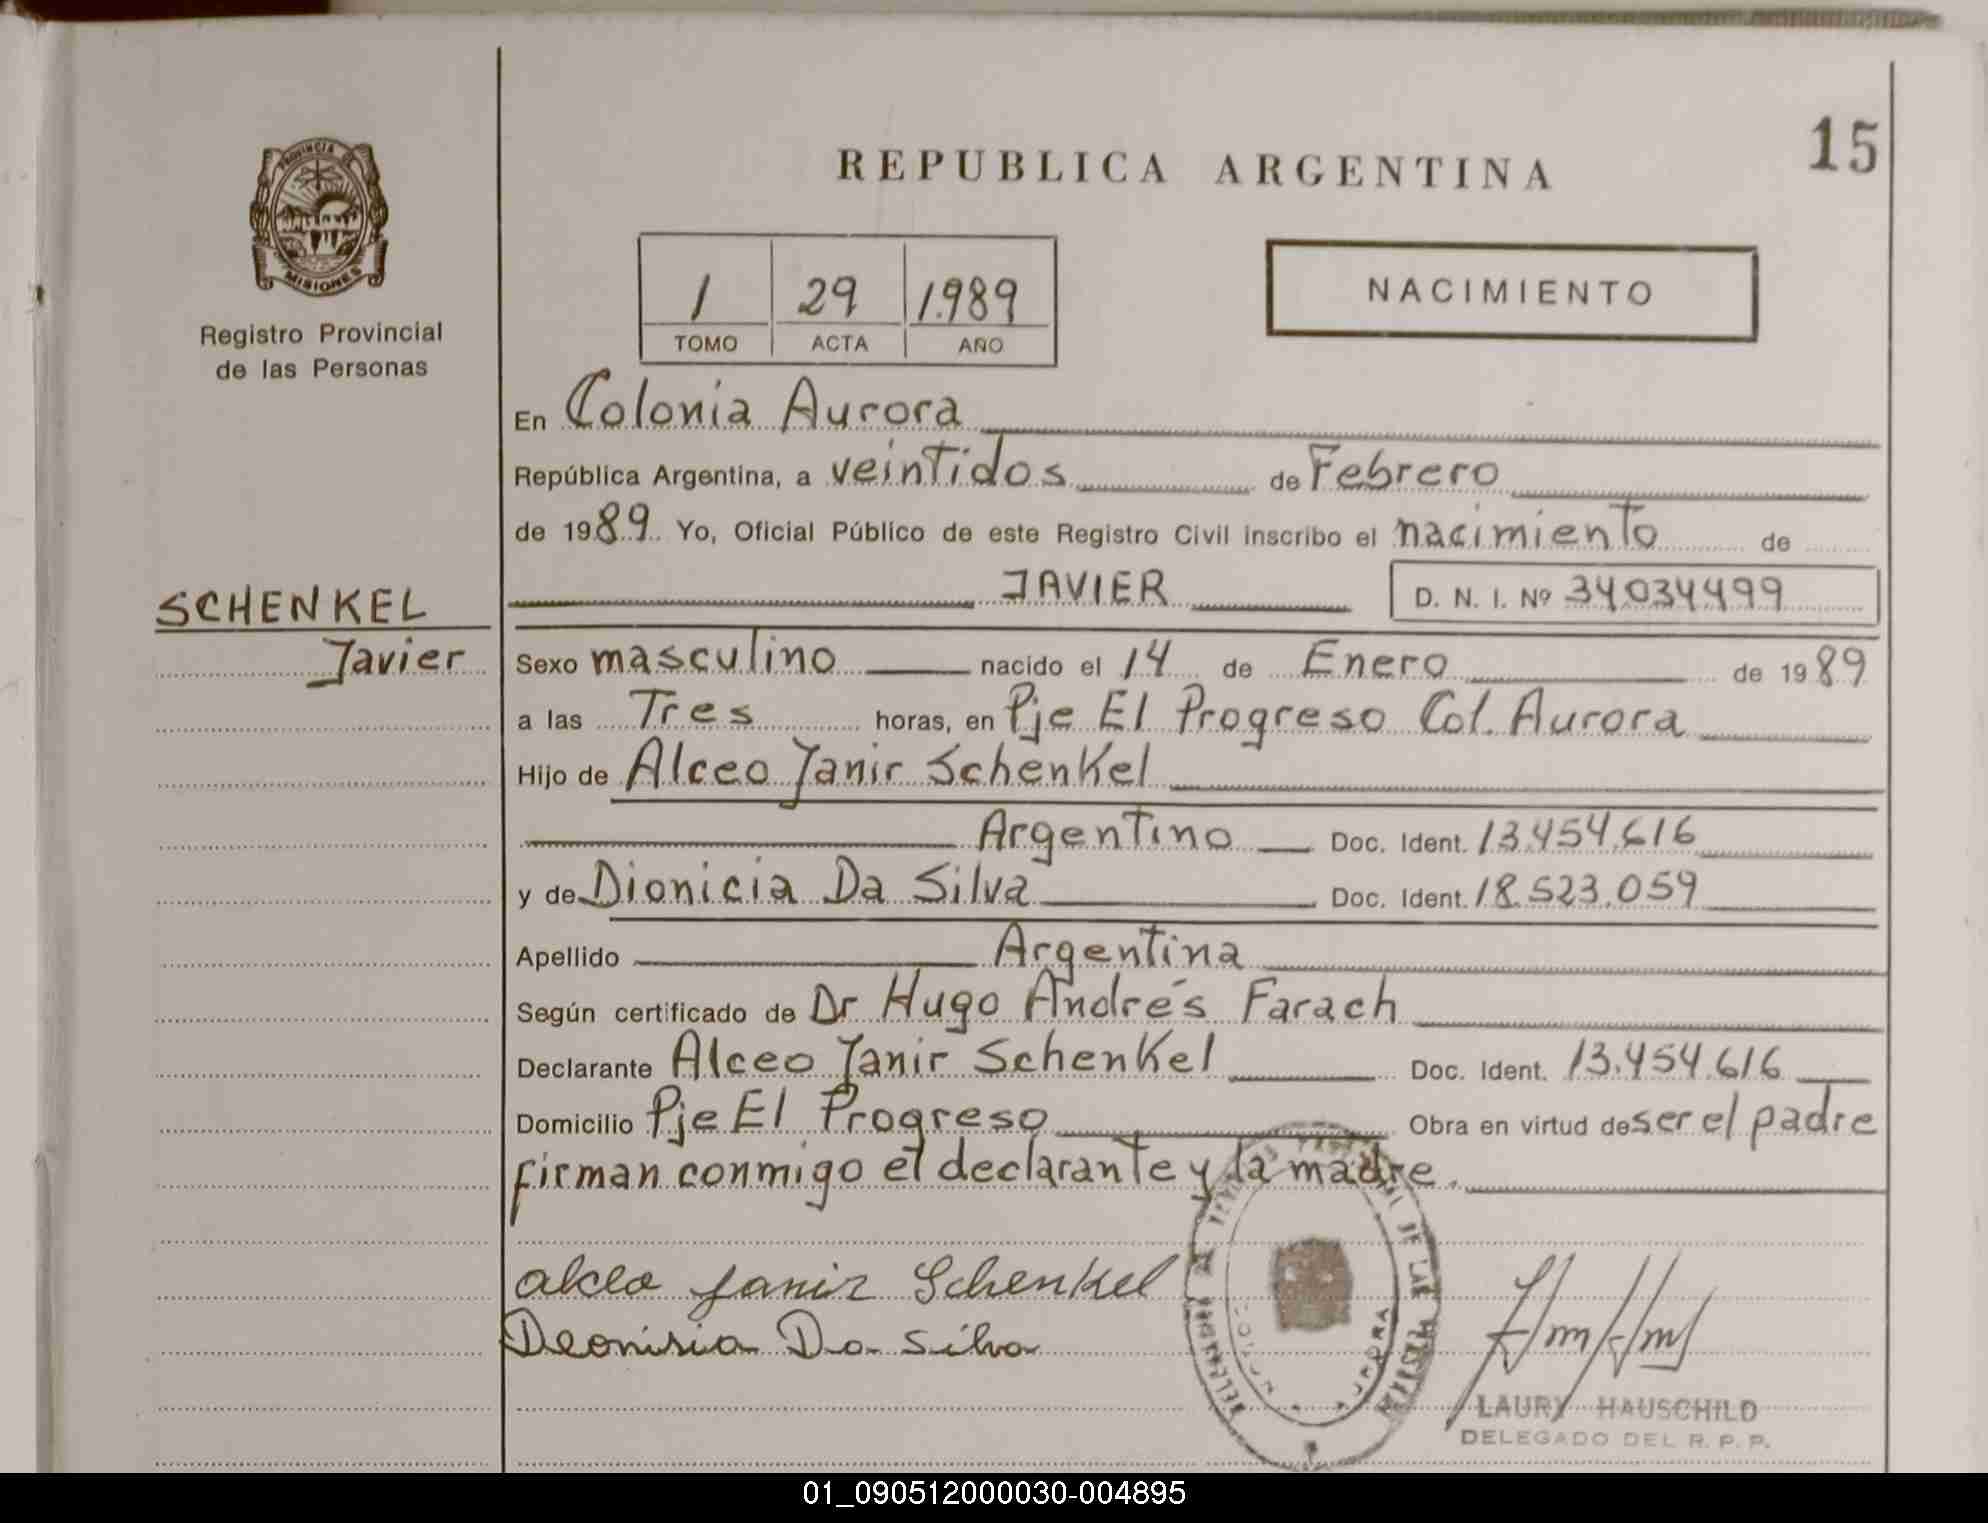 15
REPUBLICA ARGENTINA
PROVINCIA DE
MISIONES
Registro Provincial
de las Personas
NACIMIENTO
1 29 1.989
TOMO ACTA AÑO
En Colonia Aurora
República Argentina, a veintidos de Febrero
de 1989 Yo, Oficial Público de este Registro Civil inscribo el nacimiento de
JAVIER D. N. I. Nº 34034499
SCHENKEL
Javier
Sexo masculino nacido el 14 de Enero de 1989
a las Tres horas, en Pje El Progreso Col. Aurora
Hijo de Alceo Janir Schenkel
Argentino Doc. Ident. 13.454.616
y de Dionicia Da Silva Doc. Ident. 18.523.059
Apellido Argentina
Según certificado de Dr Hugo Andrés Farach
Declarante Alceo Janir Schenkel Doc. Ident. 13.454.616
Domicilio Pje El Progreso Obra en virtud de ser el padre
firman conmigo el declarante y la madre.
alceo Janir Schenkel
Deonisia Da Silva
DE LAS
AURORA
LAURY HAUSCHILD
DELEGADO DEL R. P. P.
01_090512000030-004895